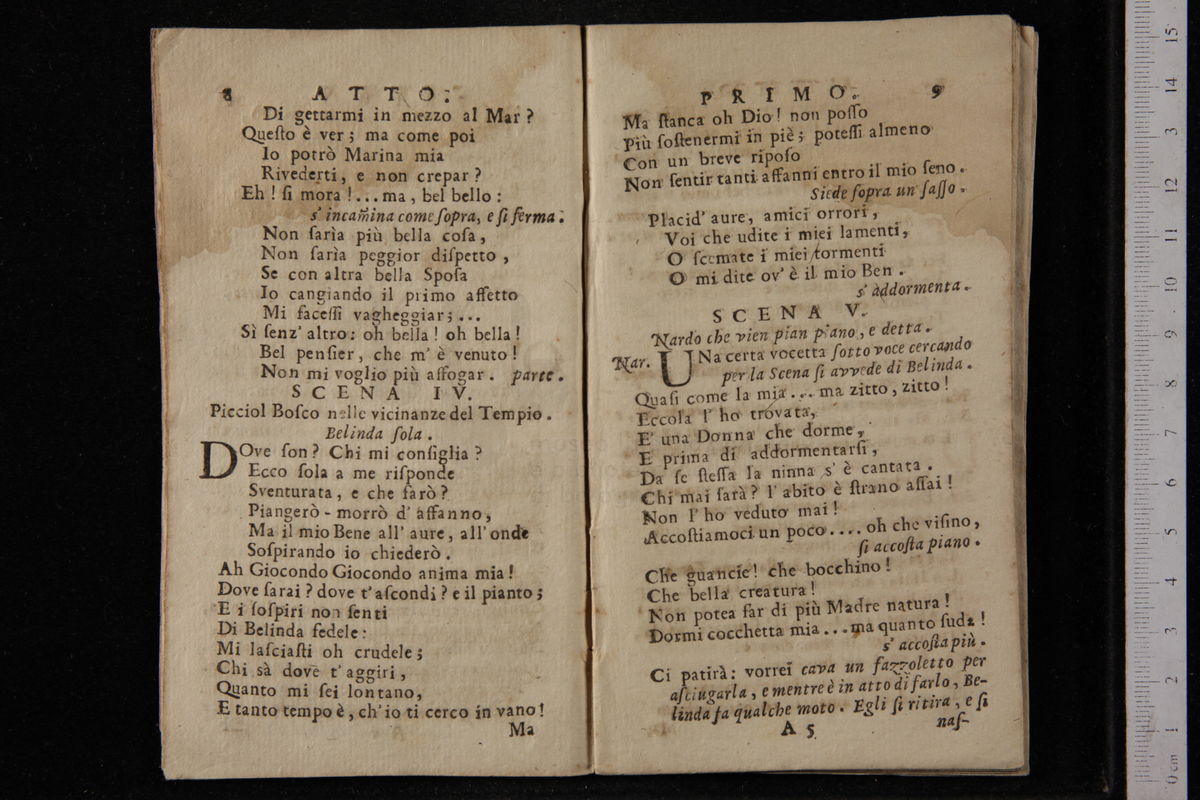 8 ATTO:
Di gettarmi in mezzo al Mar?
Queſto è ver; ma come poi
Io potrò Marina mia
Rivederti, e non crepar?
Eh! ſi mora!...ma, bel bello:
s' incam̃ina come ſopra, e ſi ferma.
Non ſaria più bella coſa,
Non ſaria peggior diſpetto,
Se con altra bella Spoſa
Io cangiando il primo affetto
Mi faceſſi vagheggiar;...
Sì ſenz' altro: oh bella! oh bella!
Bel penſier, che m' è venuto!
Non mi voglio più affogar. parte.
SCENA IV.
Picciol Boſco nelle vicinanze del Tempio.
Belinda ſola.
DOve ſon? Chi mi conſiglia?
Ecco ſola a me riſponde
Sventurata, e che farò?
Piangerò - morrò d' affanno,
Ma il mio Bene all' aure, all' onde
Soſpirando io chiederò.
Ah Giocondo Giocondo anima mia!
Dove ſarai? dove t' aſcondi? e il pianto;
E i ſoſpiri non ſenti
Di Belinda fedele:
Mi laſciaſti oh crudele;
Chi sà dove t' aggiri,
Quanto mi ſei lontano,
E tanto tempo è, ch' io ti cerco in vano!
Ma
PRIMO. 9
Ma ſtanca oh Dio! non poſſo
Più ſoſtenermi in piè; poteſſi almeno
Con un breve ripoſo
Non ſentir tanti affanni entro il mio ſeno.
Siede ſopra un ſaſſo.
Placid' aure, amici orrori,
Voi che udite i miei lamenti,
O ſcemate i miei tormenti
O mi dite ov' è il mio Ben.
s' addormenta.
SCENA V.
Nardo che vien pian piano, e detta.
Nar. UNa certa vocetta ſotto voce cercando
per la Scena ſi avvede di Belinda.
Quaſi come la mia... ma zitto, zitto!
Eccola l' ho trovata,
E' una Donna che dorme,
E prima di addormentarſi,
Da ſe ſteſſa la ninna s' è cantata.
Chi mai ſarà? l' abito è ſtrano aſſai!
Non l' ho veduto mai!
Accoſtiamoci un poco.... oh che viſino,
ſi accoſta piano.
Che guancie! che bocchino!
Che bella creatura!
Non potea far di più Madre natura!
Dormi cocchetta mia...ma quanto ſuda!
s' accoſta più.
Ci patirà: vorrei cava un fazzoletto per
aſciugarla, e mentre è in atto di farlo, Be-
linda fa qualche moto. Egli ſi ritira, e ſi
A 5 naſ-
0 cm 1 2 3 4 5 6 7 8 9 10 11 12 13 14 15